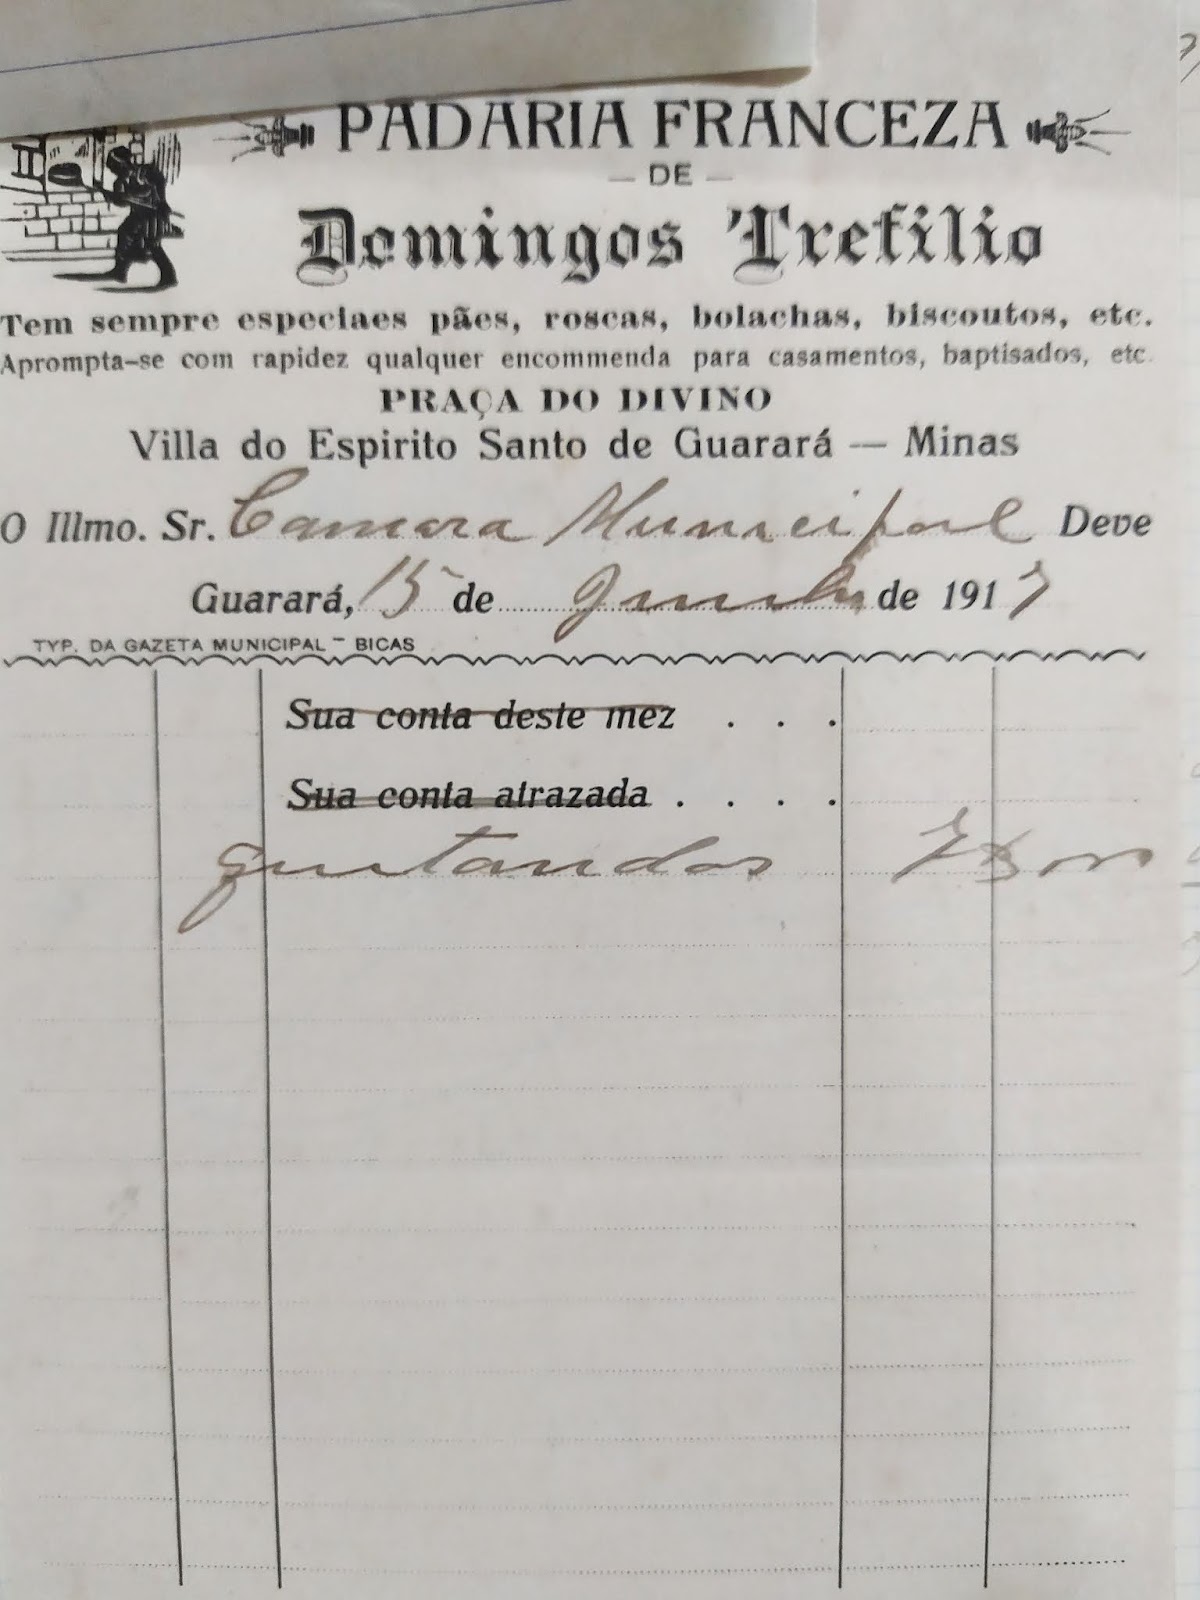 PADARIA FRANCEZA
— DE —
Domingos Trefilio
Tem sempre especiaes pães, roscas, bolachas, biscoutos, etc.
Aprompta-se com rapidez qualquer encommenda para casamentos, baptisados, etc.
PRAÇA DO DIVINO
Villa do Espirito Santo de Guarará — Minas
O Illmo. Sr. Camara Municipal Deve
Guarará, 15 de Junho de 1917
TYP. DA GAZETA MUNICIPAL - BICAS
Sua conta deste mez . . .
Sua conta atrazada . . . .
quitandas